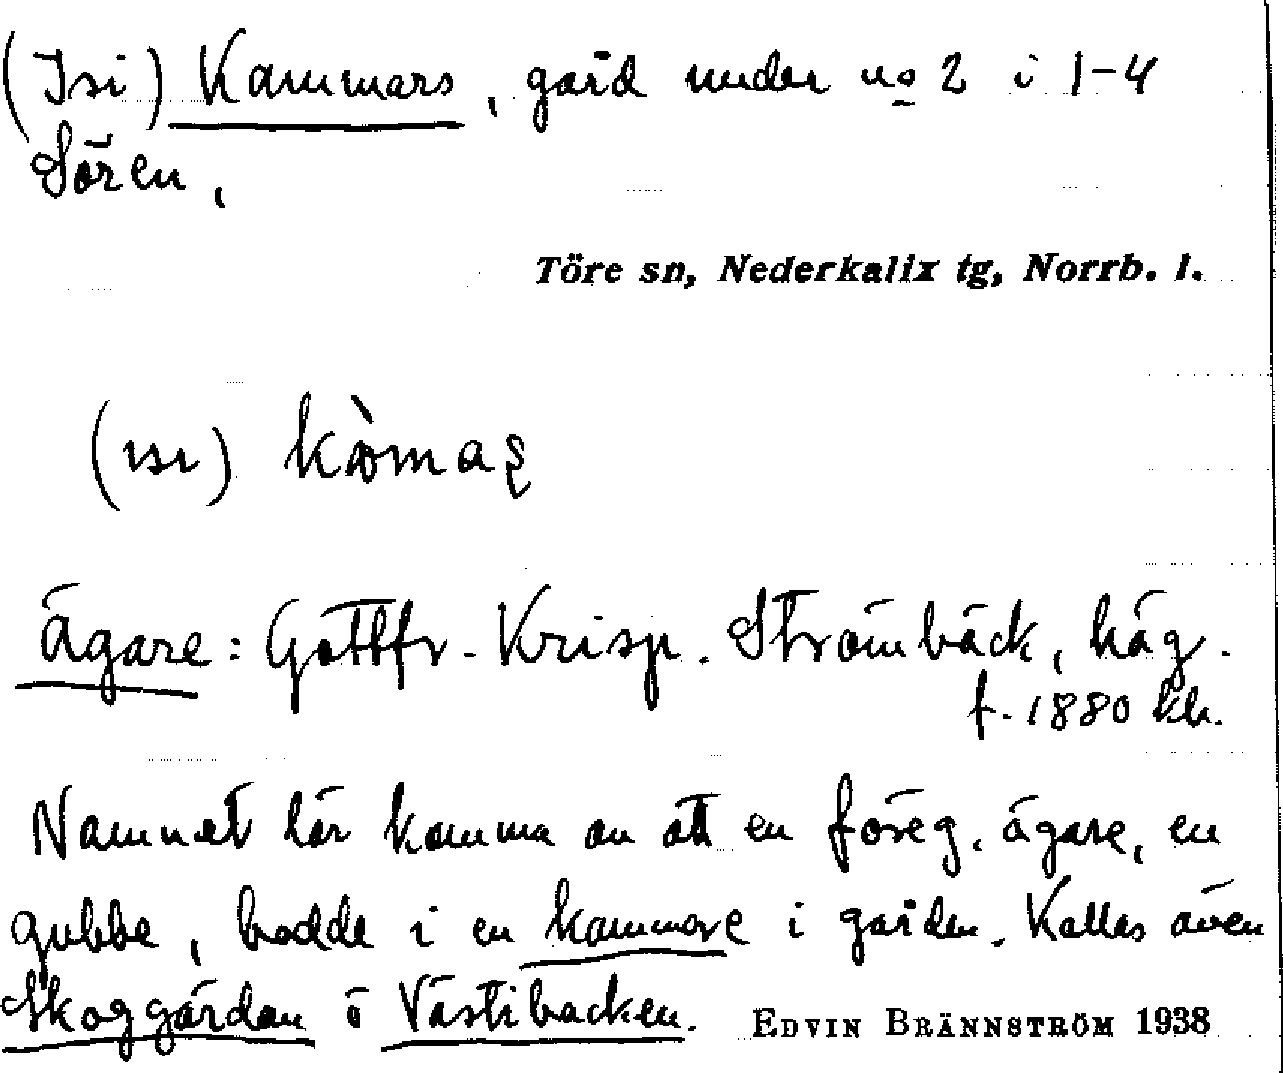 (Isi) Kammars, gård under no 2 i 1-4
Sören,
Töre sn, Nederkalix tg, Norrb. l.
(ısı)
Ägare: Gottfr. Krisp. Strömbäck, häg.
f. 1880 kh.
Namnet lär komma av att en föreg. ägare, en
gubbe, bodde i en kammare i gården. Kallas även
Skoggårdan o Västibacken.
EDVIN BRÄNNSTRÖM 1938